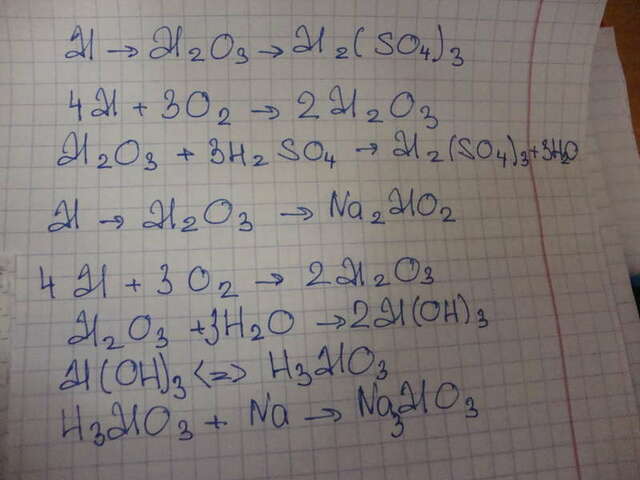 Al → Al₂O₃ → Al₂(SO₄)₃
4Al + 3O₂ → 2Al₂O₃
Al₂O₃ + 3H₂SO₄ → Al₂(SO₄)₃ + 3H₂O
Al → Al₂O₃ → Na₂AlO₂
4Al + 3O₂ → 2Al₂O₃
Al₂O₃ + 3H₂O → 2Al(OH)₃
Al(OH)₃ <=> H₃AlO₃
H₃AlO₃ + Na → Na₃AlO₃